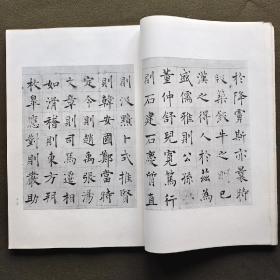 於降虜斯亦曩時
版築飯牛之朋已
漢之得人於茲為
盛儒雅則公孫弘
董仲舒兒寬篤行
則石建石慶質直
則汲黯卜式推賢
則韓安國鄭當時
定令則趙禹張湯
文章則司馬遷相
如滑稽則東方朔
枚皋應對則嚴助